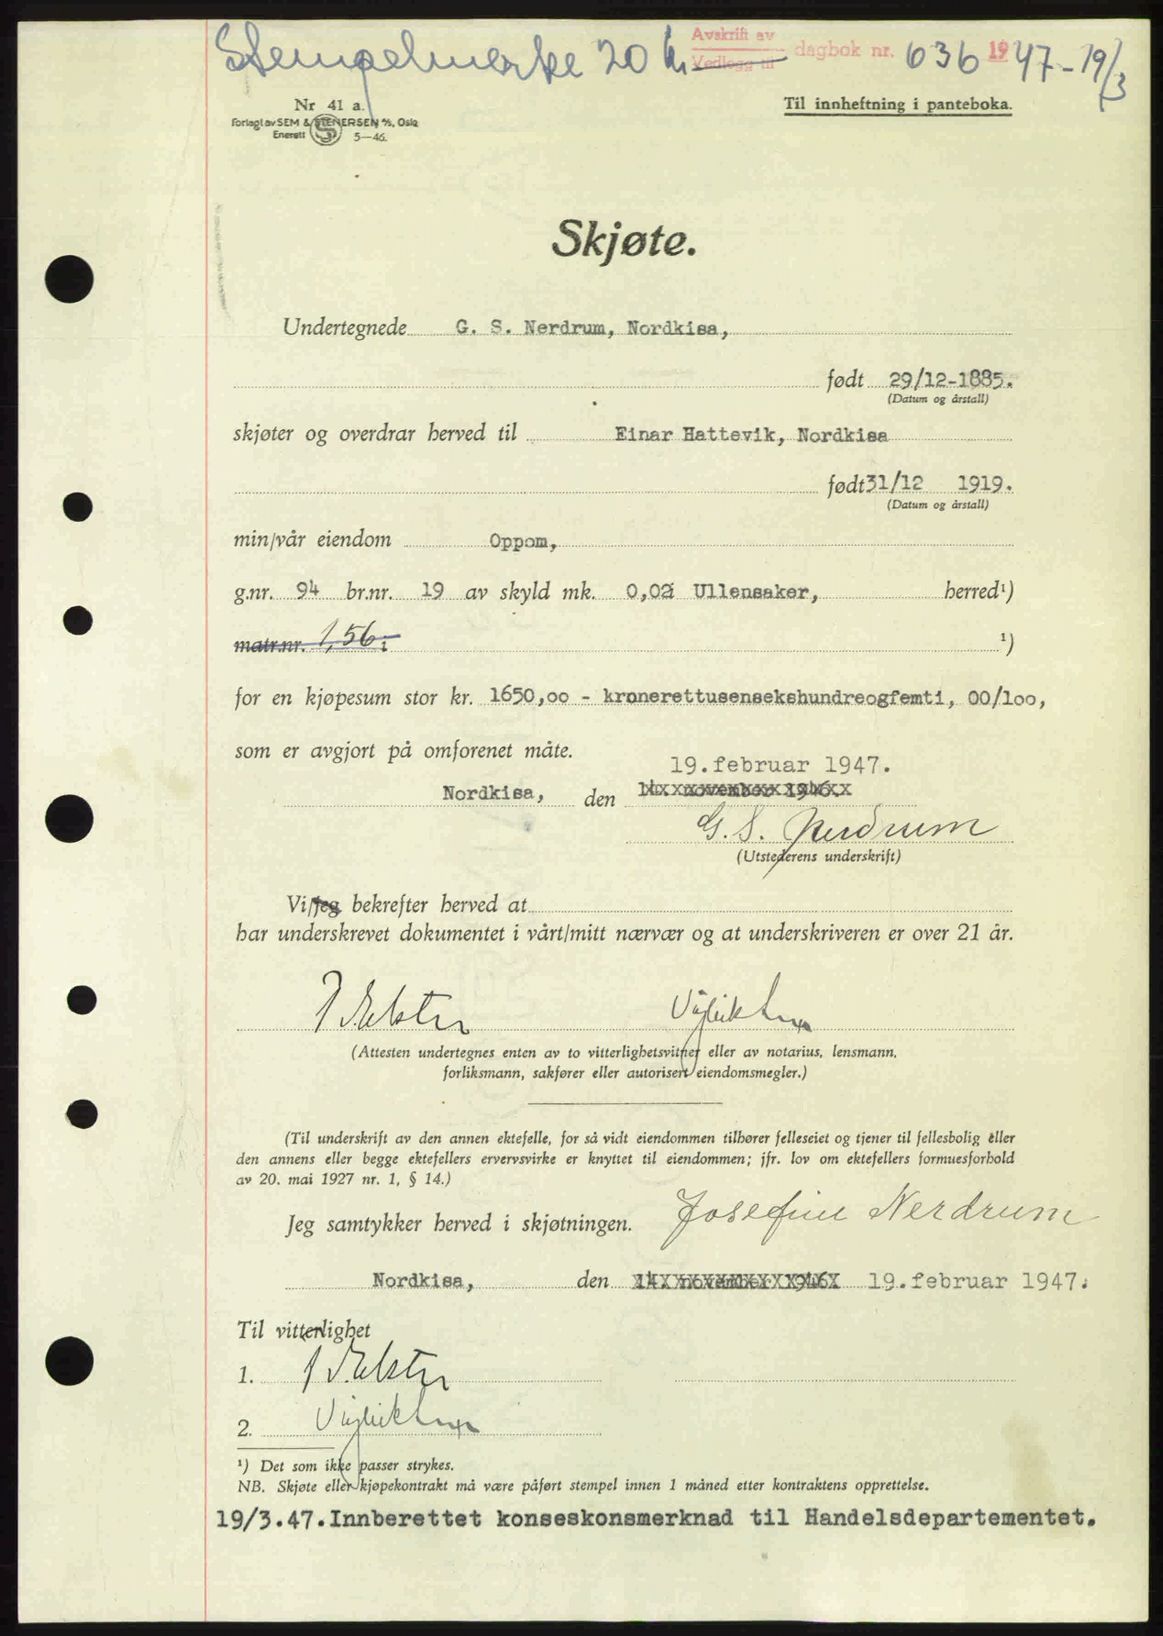 Stempelmerke 20 kr
Avskrift av
Vedlegg til
dagbok nr. 636 1947-19/3
Nr 41 a.
Forlagt av SEM & STENERSEN A/S, Oslo
Enerett 5—46.
Til innheftning i panteboka.
Skjøte.
Undertegnede G. S. Nerdrum, Nordkisa,
født 29/12-1885.
(Datum og årstall)
skjøter og overdrar herved til Einar Hattevik, Nordkisa
født 31/12 1919.
(Datum og årstall)
min/vår eiendom Oppom,
g.nr. 94 br.nr. 19 av skyld mk. 0,02 Ullensaker, herred¹)
matr.nr. 1,56 i ¹)
for en kjøpesum stor kr. 1650,oo - kronerettusensekshundreogfemti, 00/1oo,
som er avgjort på omforenet måte.
19.februar 1947.
Nordkisa, den 14. november 1946.
G. S. Nerdrum
(Utstederens underskrift)
Vi/jeg bekrefter herved at
har underskrevet dokumentet i vårt/mitt nærvær og at underskriveren er over 21 år.
(Attesten undertegnes enten av to vitterlighetsvitner eller av notarius, lensmann,
forliksmann, sakfører eller autorisert eiendomsmegler.)
(Til underskrift av den annen ektefelle, for så vidt eiendommen tilhører felleseiet og tjener til fellesbolig eller
den annens eller begge ektefellers ervervsvirke er knyttet til eiendommen; jfr. lov om ektefellers formuesforhold
av 20. mai 1927 nr. 1, § 14.)
Jeg samtykker herved i skjøtningen. Josefine Nerdrum
Nordkisa, den 14. november 1946 19.februar 1947.
Til vitterlighet
1.
2.
¹) Det som ikke passer strykes.
NB. Skjøte eller kjøpekontrakt må være påført stempel innen 1 måned etter kontraktens opprettelse.
19/3.47.Innberettet konseskonsmerknad til Handelsdepartementet.